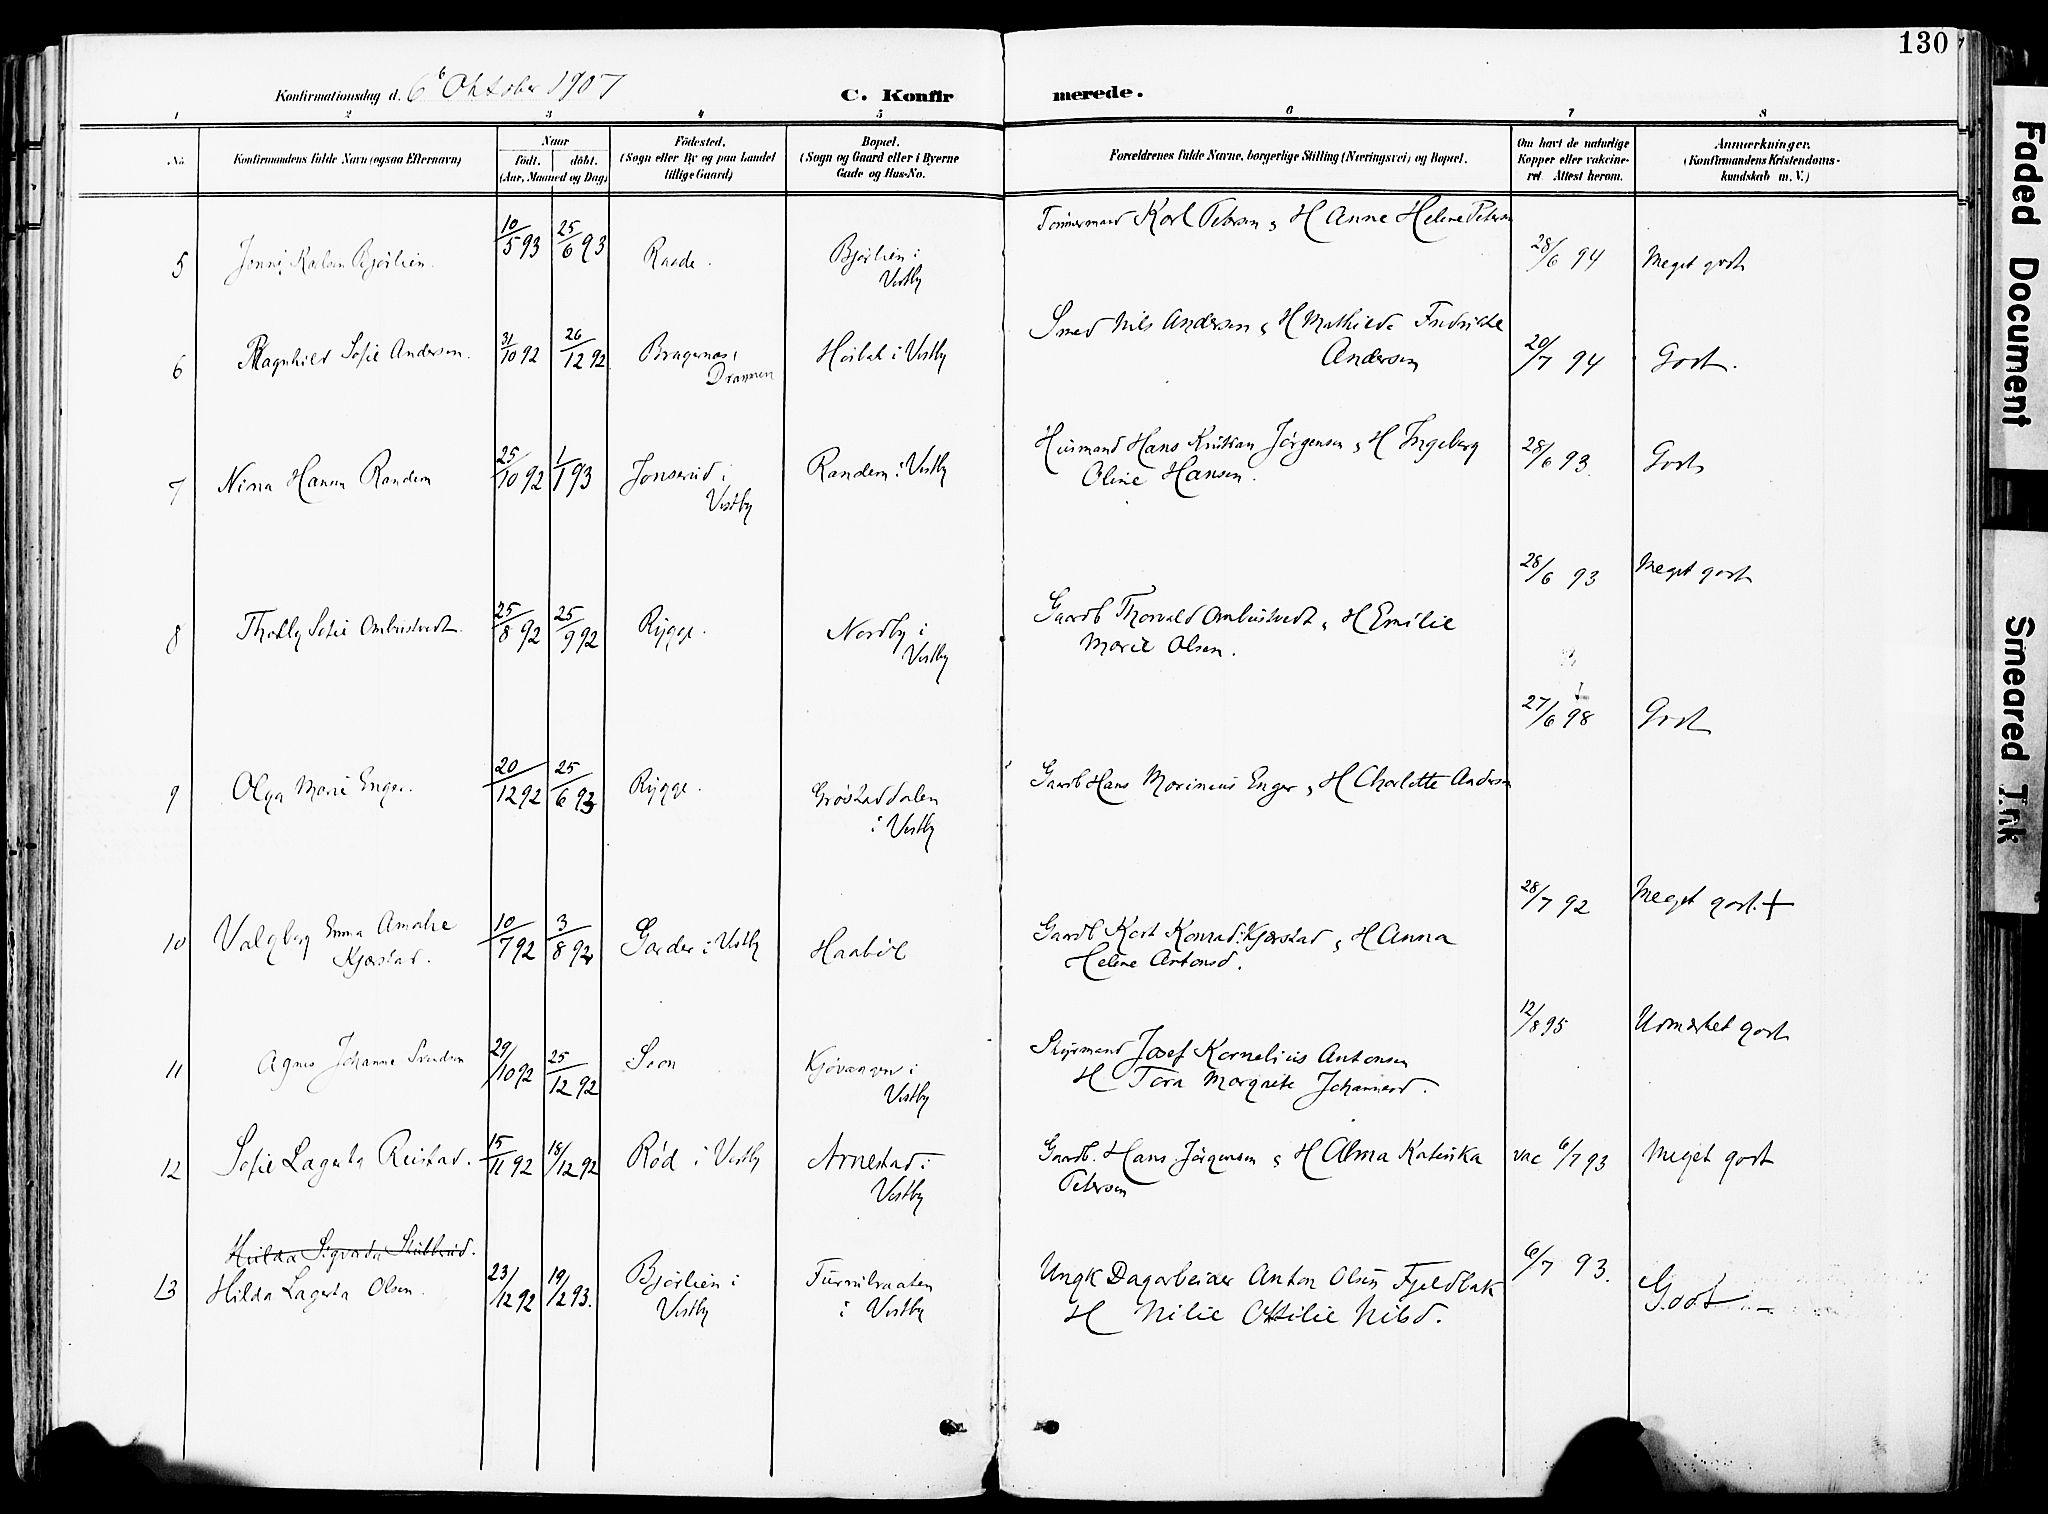 130
Konfirmationsdag d. 6 Oktober 1907
C. Konfir merede.
1 2 3 4 5 6 7 8
No
Konfirmandens fulde Navn (ogsaa Efternavn)
Naar
födt. döbt.
(Aar, Maaned og Dag)
Födested.
(Sogn eller By og paa Landet
tillige Gaard)
Bopæl.
(Sogn og Gaard eller i Byerne
Gade og Hus-No.
Forældrenes fulde Navne, borgerlige Stilling (Næringsvei) og Bopæl.
Om havt de naturlige
Kopper eller vakcine-
ret Attest herom.
Anmærkninger.
(Konfirmandens Kristendoms-
kundskab m. V.)
5 Jenny Karlsen Bjørlien. 10/5 93 25/6 93 Raade. Bjørlien i
Vestby
Tømmermand Karl Petersen & H Anne Helene Petersen
28/6 94 Meget godt
6 Ragnhild Sofie Andersen. 31/10 92 26/12 92 Bragernæs,
Drammen
Høibak i Vestby
Smed Nils Andersen & H Mathilde Fredrikke
Andersen
20/7 94 Godt.
7 Nina Hansen Randem 25/10 92 1/1 93 Jonserud i
Vestby
Randem i Vestby
Husmand Hans Kristian Jørgensen & H Ingeborg
Oline Hansen.
28/6 93 Godt
8 Sofie Ombustvedt. 25/8 92 25/9 92 Rygge. Nordby i
Vestby
Gaardb Thorvald Ombustvedt & H Emilie
Marie Olsen.
28/6 93 Meget godt
9 Olga Marie Enger. 20/12 92 25/6 93 Rygge. Grøstaddalen
i Vestby
Gaardb Hans Marinius Enger & H Charlotte Andersen
27/6 98 Godt
10 Valgborg Emma Amalie
Kjærstad.
10/7 92 3/8 92 Garder i Vestby Haabøl
Gaardb Kort Konrad Kjærstad & H Anna
Helene Antonsd.
28/7 92 Meget godt. +
11 Agnes Johanne Svendsen 29/10 92 25/12 92 Soon Kjøvangen i
Vestby
Styrmand Josef Kornelius Antonsen
H Tora Margrete Johannesd.
12/8 95 Udmærket godt
12 Sofie Lagerta Reistad. 15/11 92 18/12 92 Rød i Vestby Arnestad i
Vestby
Gaardb. Hans Jørgensen & H Alma Katinka
Petersen
vac 6/7 93 Meget godt
Hilda Sigvarda Skibbrud.
13 Hilda Lagerta Olsen. 23/12 92 19/2 93. Bjørlien i
Vestby
Furnibraaten
i Vestby
Ungk Dagarbeider Anton Olsen Fjeldbak
H Nilie Ottilie Nilsd.
6/7 93. Godt
Faded Document
Smeared Ink